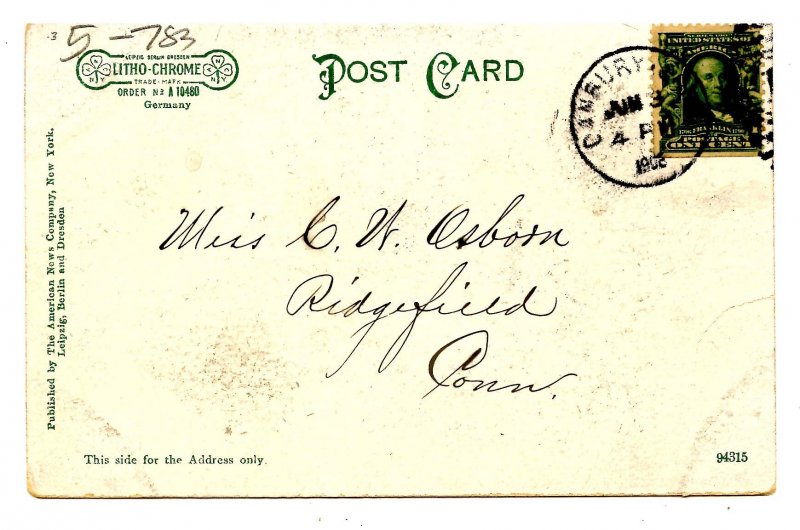 3
5-783
LEIPZIG BERLIN DRESDEN
LITHO-CHROME
TRADE-MARK
ORDER No A 10480
Germany
POST CARD
DANBURY
JUN
4 PM
SERIES 1902
UNITED STATES OF
AMERICA
1706 FRANKLIN 1790
POSTAGE
ONE CENT
Published by The American News Company, New York.
Leipzig, Berlin and Dresden
Miss C. W. Osborn
Ridgefield
Conn.
This side for the Address only.
94315